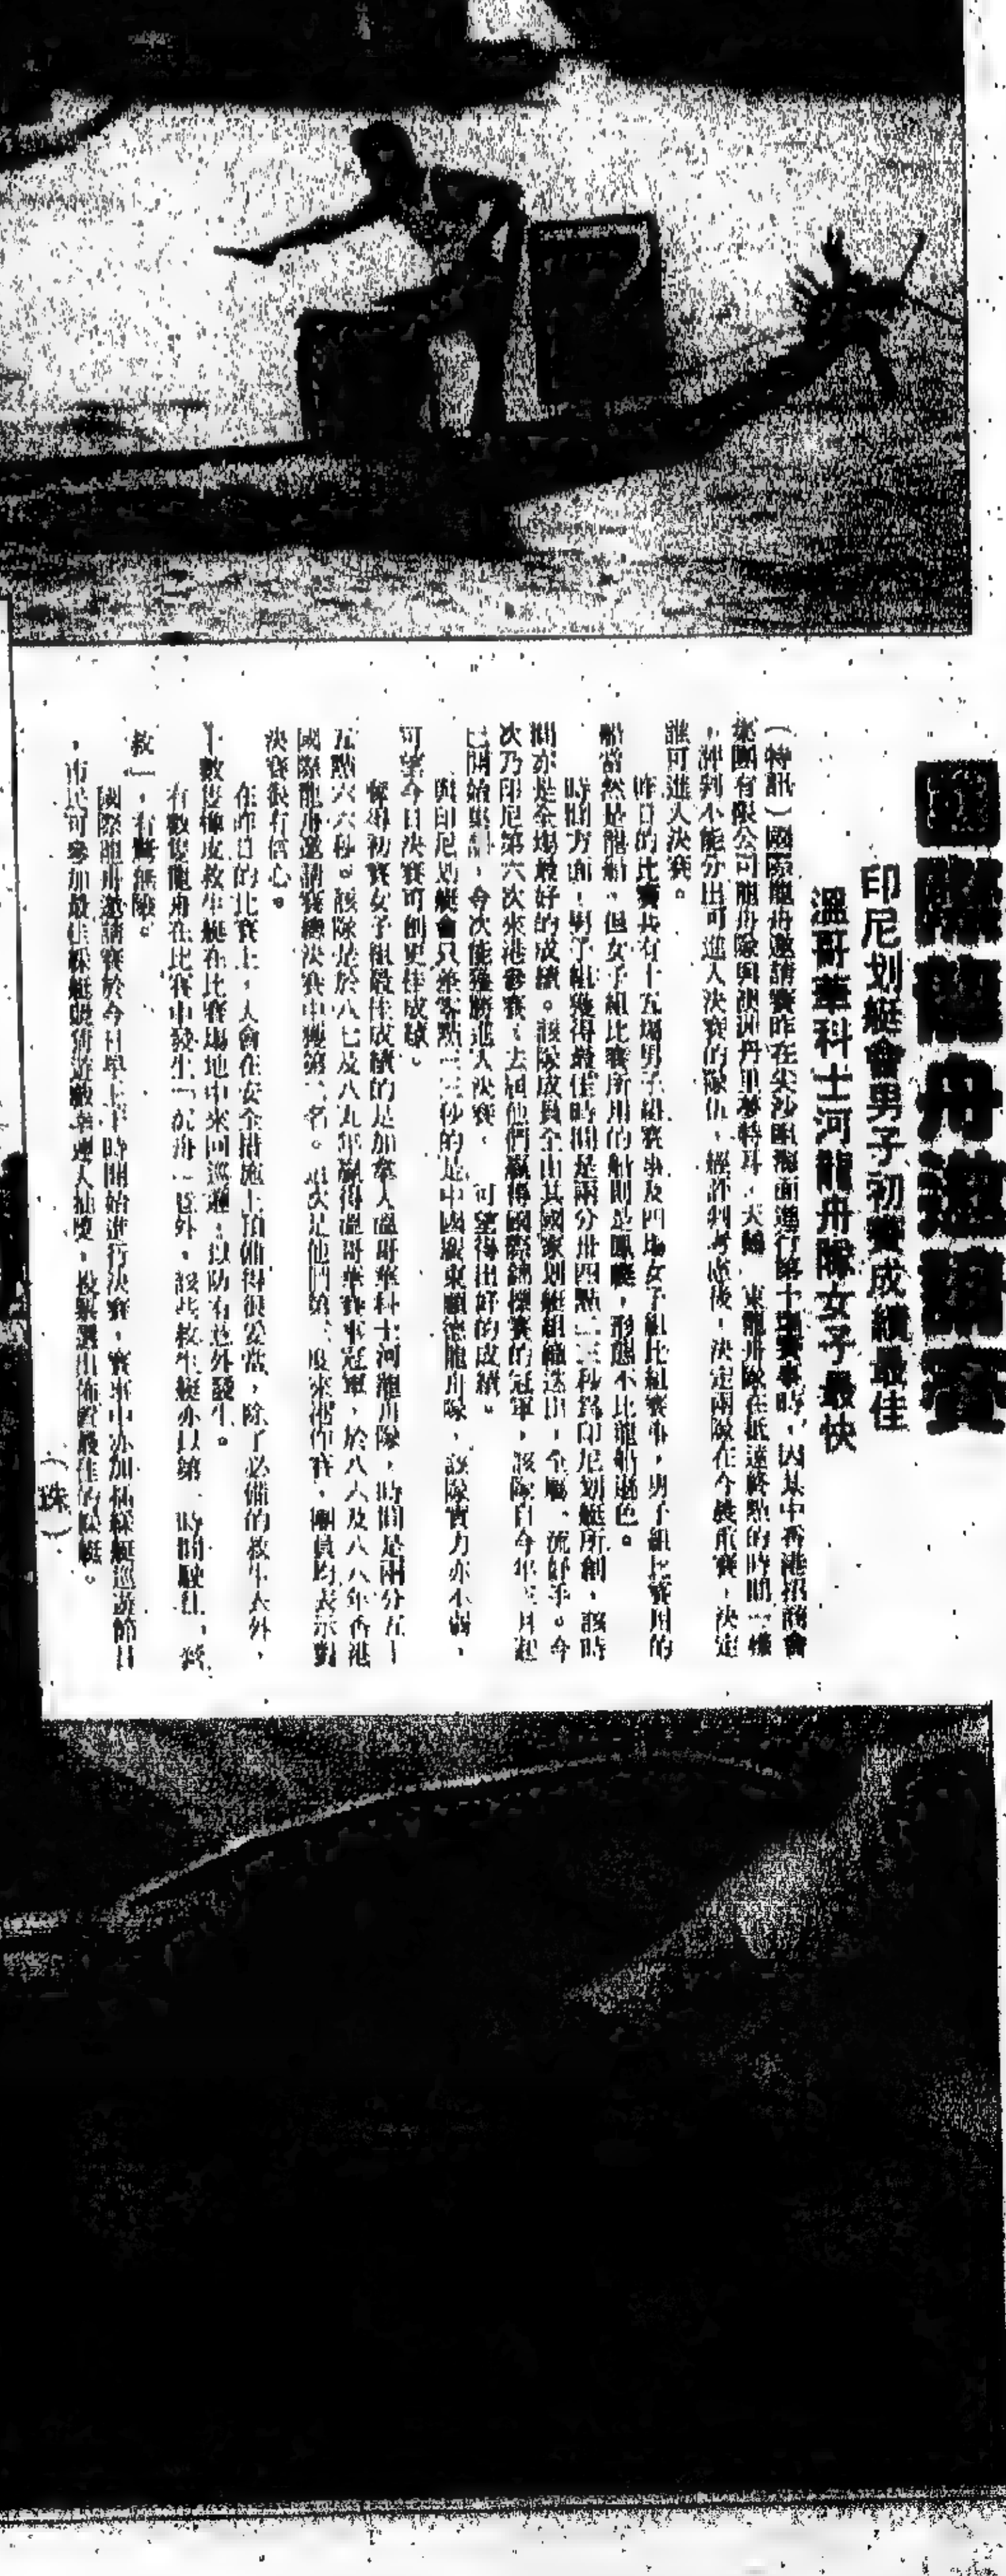 國際龍舟邀請賽
印尼划艇會男子初賽成績最佳
溫哥華科士河龍舟隊女子最快
(特訊)國際龍舟邀請賽昨在尖沙咀海面進行第十四賽事時,因其中香港招商會
集團有限公司龍舟隊與澳洲丹里夢特耳,天輪 東龍舟隊在抵達終點的時間一樣
,評判不能分出可進入決賽的隊伍,經評判考慮後,決定兩隊在今晨重賽,決定
誰可進入決賽。
昨日的比賽共有十五場男子組賽事及四場女子組比組賽事,男子組比賽用的
船當然是龍船,但女子組比賽所用的船則是鳳艇,形態不比龍船遜色。
時間方面,男子組獲得最佳時間是兩分卅四點 三秒為印尼划艇所創,該時
間亦是全場最好的成績。該隊成員全由其國家划艇組織選出,全屬一流好手。今
次乃印尼第六次來港參賽,去回他們贏得國際錦標賽的冠軍,該隊自今年 月起
已開始集訓,今次能獲勝進入決賽, 可望得出好的成績。
與印尼划艇會只差零點 三秒的是中國廣東順德龍舟隊,該隊實力亦不弱,
可望今日決賽可創更佳成績。
奪得初賽女子組最佳成績的是加拿大溫哥華科士河龍舟隊,時間是兩分五十
五點六六秒。該隊是於八七及八九年贏得溫哥華賽事冠軍,於八六及八八年香港
國際龍舟邀請賽總決賽中獲第 名。是次是他們第 度來港作賽,團員均表示對
決賽很有信心。
在昨日的比賽上,大會在安全措施上預備得很妥當,除了必備的救生衣外,
十數隻橡皮救生艇在比賽場地中來回巡邏,以防有意外發生。
有數隻龍舟在比賽中發生「沉舟」意外,該些救生艇亦以第一時間駛往「拯
救」,有驚無險。
國際龍舟邀請賽於今日早上 時開始進行決賽,賽事中亦加插綵艇巡遊節目
,市民可參加最佳綵艇競猜遊戲幸運大抽獎,投票選出佈置最佳的綵艇。
(珠)